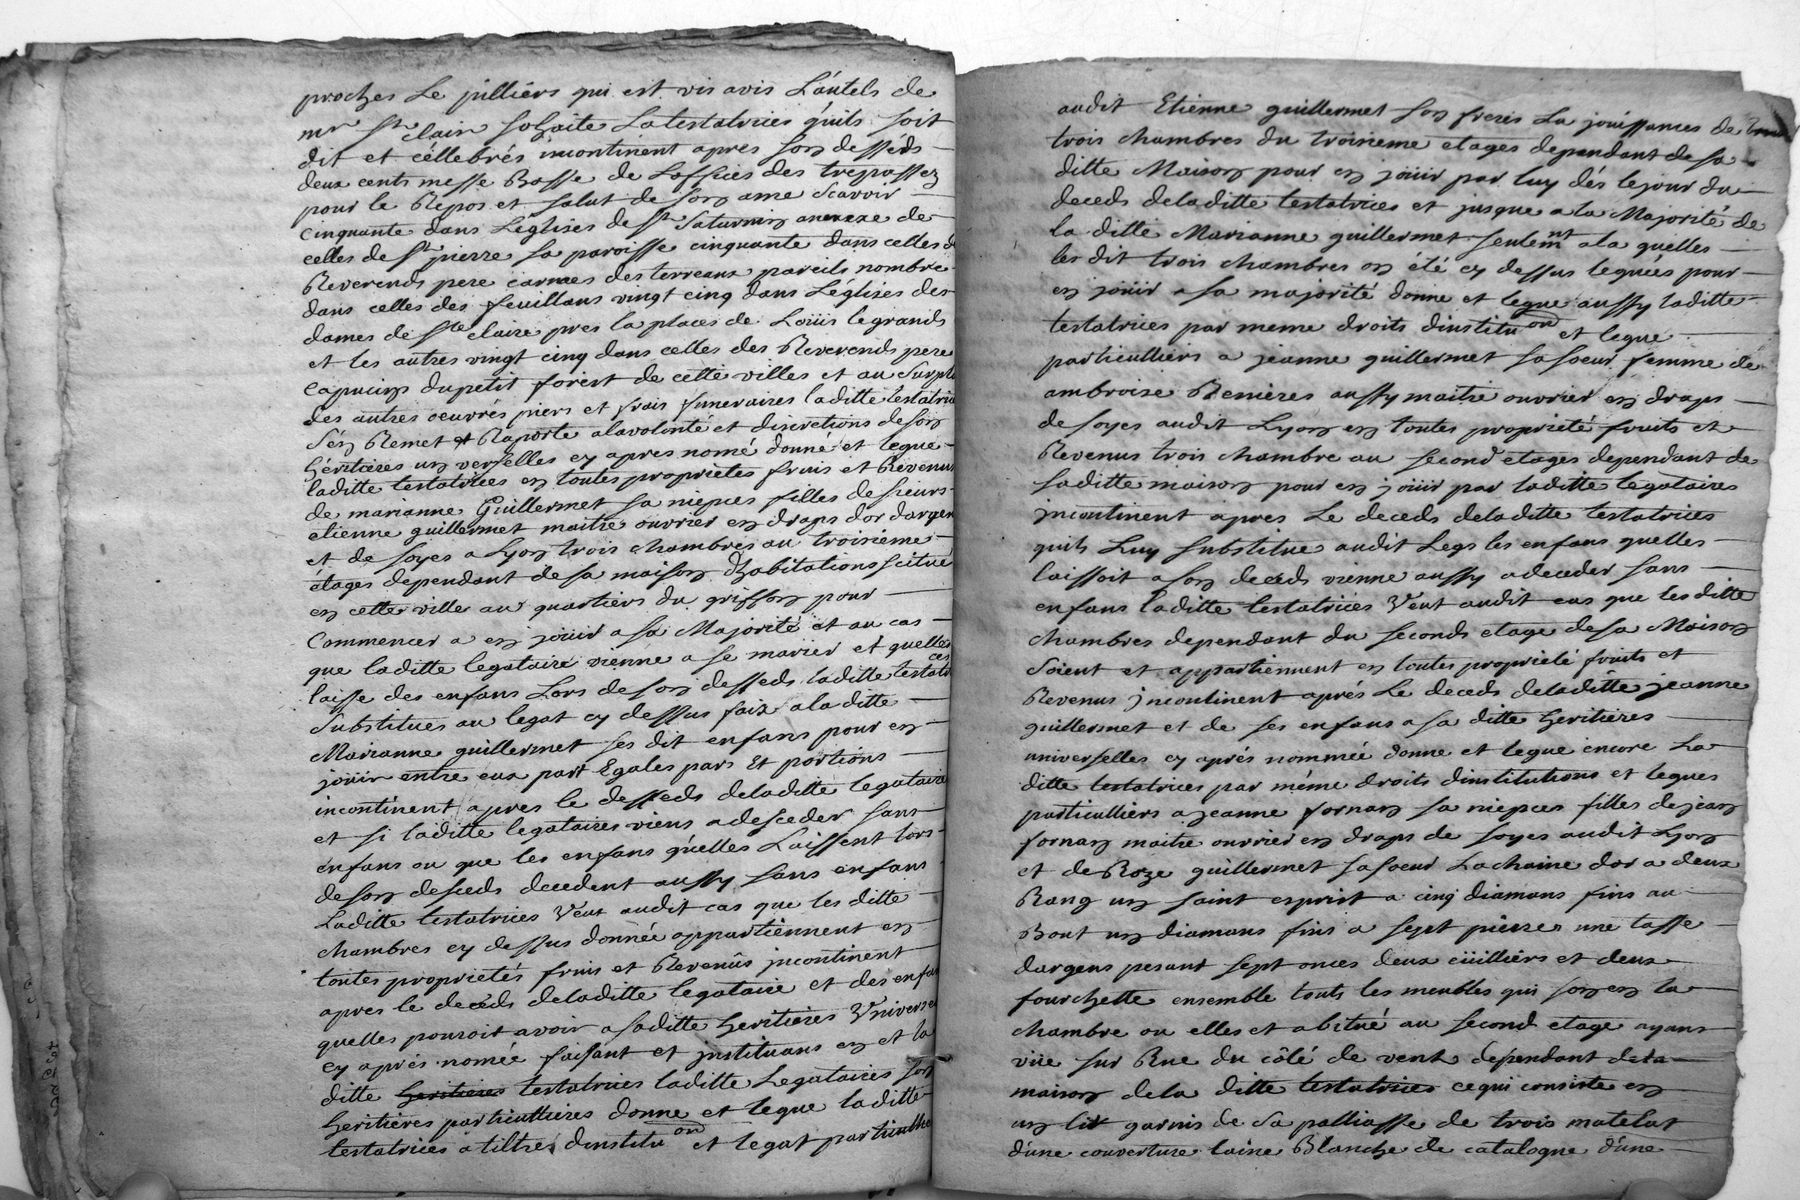 proches Le pilliérs qui est vis avis L'áutels de
mr. St. Clair sohaite La testatrices qúils soit
dit et céllebrés incontinent apres son desséds
deux cents messe Basse de Loffices des trépassez
pour le Repos et salut de son ame Scavoir
cinquante dans Léglises de St. Saturnin anexaxe de
celles de St. pierre sa paroisse cinquante dans celles de
Reverends pere carmes des terreaux pareils nombre
dans celles des feuillans vingt cinq dans Léglises des
dames de Ste. claire pres la places de Loüis legrands
et les autres vingt cinq dans celles des Reverends pere
Capucins du petit forest de cette villes et au Surplu
des autres oeuvrés piers et frais funeraires laditte testatric
s'én Remet et Raporte alavolonté et discretions de son
héritieres un verselles cy apres nomé donné et legue
laditte testatrices en toutes proprietes fruis et Revenus
de marianne Guillermet sa niepces filles de sieurs
etienne guillermet maitre ouvrier en draps dor dargen
et de soyes a Lyon trois chambres au troisieme
étages dependant de sa maison dhabitations scitué
en cette ville au quartiers du griffon pour
Commencer a en joüir a sa Majorité et au cas
que laditte legataire vienne a se marier et quelles
laisse des enfans Lors de son desseds laditte testatrices
Substitues au legat cy dessus faix a la ditte
Marianne guillermet ses dit enfans pour en
joüir entre eux part Egales pars Et portions
incontinent apres le desseds deladitte legataire
et si laditte legataires viens a desceder sans
enfans ou que les enfans qúelles Laissent lors
de son desceds decedent aussy sans enfans
Laditte testatrices Veut audit cas que les ditte
chambres cy dessus donnée appartiennent en
toutes proprietés fruis et Revenûs jncontinent
apres le decéds deladitte legataire et des enfan
quelles pouroit avoir a saditte heritieres Universe
cy aprés nomée faisant et jnstituans en et la
ditte heritieres testatrices laditte Legataires son
heritieres particullieres donne et legue laditte
testatrices a tiltres dinstituon et legat particullie
audit Etienne guillermet son freres La joüissances de
trois chambres du troisieme etages dependant de sa
ditte Maison pour en joüir par luy dés lejour du
deceds deladitte testatrices et jusque a la Majorité de
la ditte Marianne guillermet seulemnt ala quelles
les dit trois chambres on été cy dessus leguées pour
en joüir a sa majorité donne et legue aussy laditte
testatrices par meme droits dinstituon et legue
particulliers a jeanne guillermet sa soeur femme de
ambroise Renières aussy maitre ouvrier en draps
de soyes audit Lyon en toutes proprieté fruits et
Revenus trois chambre au second etages dependant de
saditte maison pour en joüir par laditte legataires
jncontinent apres Le deceds deladitte testatrices
quils Luy substitue audit Legs les enfans quelles
laissoit a son deceds vienne aussy a deceder sans
enfans laditte testatrices Veut audit cas que les ditte
chambres dependant du seconds etage de sa Maison
Soient et appartiennent en toutes proprieté fruits et
Revenus jncontinent aprés Le deceds deladitte jeanne
guillermet et de ses enfans a sa ditte heritieres
universelles cy aprés nommée donne et legue encore La
ditte testatrices par méme droits dinstitutions et legues
particulliers a jeanne fornan sa niepces filles de jean
fornan maitre ouvrier en draps de soyes audit Lyon
et de Roze guillermet sa soeur La chaine dor a deux
Rang un saint esprit a cinq diamans fins au
Bout un diamans fins a sept pierre une tasse
dargens pesant sept onces deux cüilliers et deux
fourchette ensemble touts les meubles qui son en la
chambre ou elles et abitué au second etage ayans
vüe sur Rue du côté de vent dependant dela
maison dela ditte testatrices cequi consiste en
un lit garnis de sa palliasse de trois matelat
d'úne couverture laine Blanche de catalogne d'úne